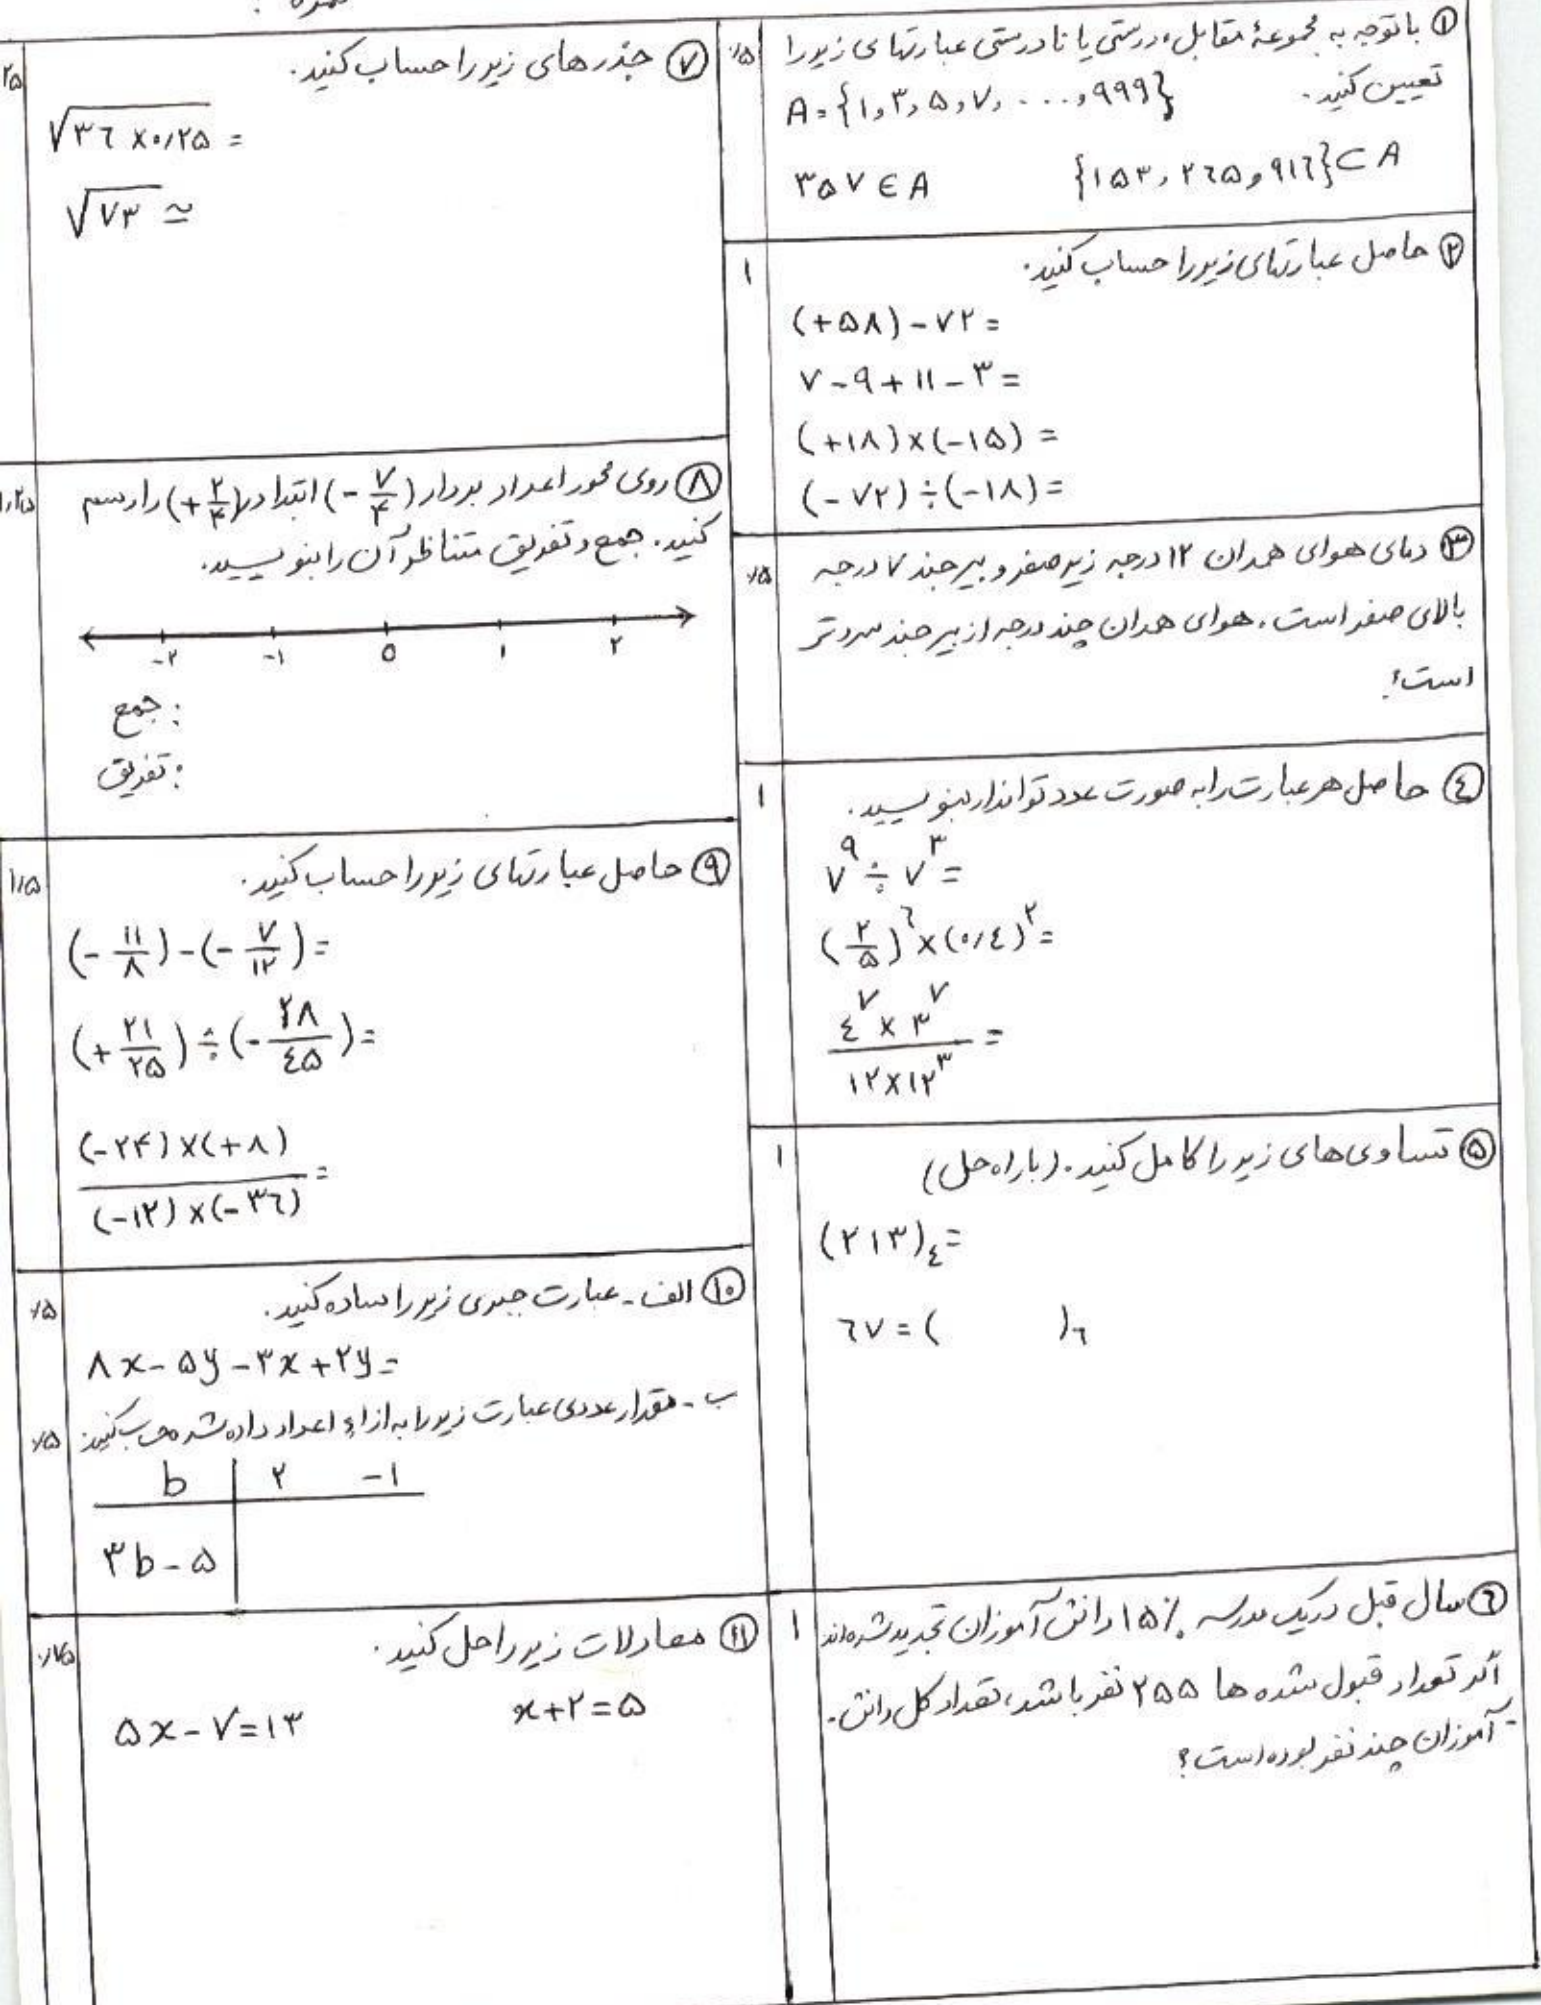 ① باتوجه به مجموعهٔ مقابل، درستی یا نادرستی عبارتهای زیر را
تعیین کنید.
A={۱,۳,۵,۷,...,۹۹۹}
۳۵۷ ∈ A {۱۵۳, ۲۶۵, ۹۱۶} ⊂ A
۱
② حاصل عبارتهای زیر را حساب کنید.
(+۵۸)-۷۲=
۷-۹+۱۱-۳=
(+۱۸)×(-۱۵)=
(-۷۲)÷(-۱۸)=
/۵
③ دمای هوای همدان ۱۲ درجه زیر صفر و بیرجند ۷ درجه
بالای صفر است. هوای همدان چند درجه از بیرجند سردتر
است؟
۱
④ حاصل هر عبارت را به صورت عدد تواندار بنویسید.
۷^۹ ÷ ۷^۳ =
(۲/۵)^۶ × (۰/۴)^۲ =
(۴^۷ × ۳^۷)/(۱۲×۱۲^۳) =
۱
⑤ تساوی‌های زیر را کامل کنید. (با راه حل)
(۲۱۳)₄=
۶۷ = ( )₆
۱
⑥ سال قبل در یک مدرسه ۱۵٪ دانش آموزان تجدید شده‌اند
اگر تعداد قبول شده ها ۲۵۵ نفر باشد، تعداد کل دانش-
آموزان چند نفر بوده است؟
/۵
⑦ جذرهای زیر را حساب کنید.
√(۳۶×۰/۲۵) =
√۷۳ ≃
⑧ روی محور اعداد بردار (-۷/۴) ابتدا در (+۲/۴) را رسم
کنید. جمع و تفریق متناظر آن را بنویسید.
-۲ -۱ 0 ۱ ۲
جمع:
تفریق:
۱/۵
⑨ حاصل عبارتهای زیر را حساب کنید.
(-۱۱/۸)-(-۷/۱۲)=
(+۲۱/۲۵)÷(-۲۸/۴۵)=
((-۲۴)×(+۸))/((-۱۲)×(-۳۶))=
/۵
⑩ الف- عبارت جبری زیر را ساده کنید.
۸x-۵y-۳x+۲y=
/۵
ب- مقدار عددی عبارت زیر را به ازاء اعداد داده شده حساب کنید:
b ۲ -۱
۳b-۵
/۷۵
⑪ معادلات زیر را حل کنید.
x+۲=۵
۵x-۷=۱۳